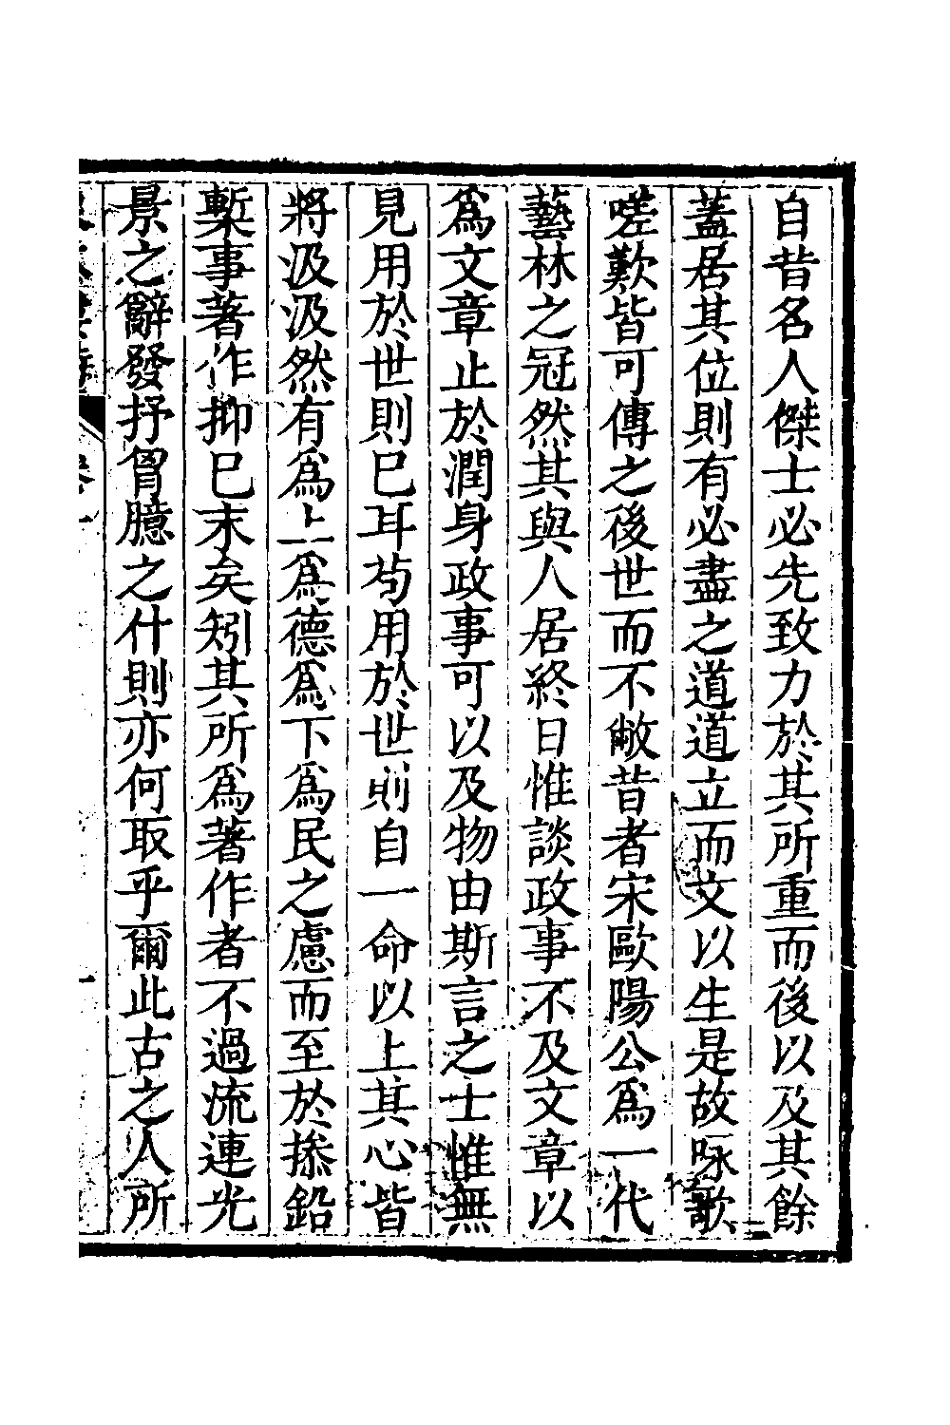 自昔名人傑士必先致力於其所重而後以及其餘
蓋居其位則有必盡之道道立而文以生是故咏歌
嗟歎皆可傳之後世而不敝昔者宋歐陽公爲一代
藝林之冠然其與人居終日惟談政事不及文章以
爲文章止於潤身政事可以及物由斯言之士惟無
見用於世則已耳茍用於世則自一命以上其心皆
將汲汲然有爲上爲德爲下爲民之慮而至於掭鉛
槧事著作抑已末矣矧其所爲著作者不過流連光
景之辭發抒胷臆之什則亦何取乎爾此古之人所